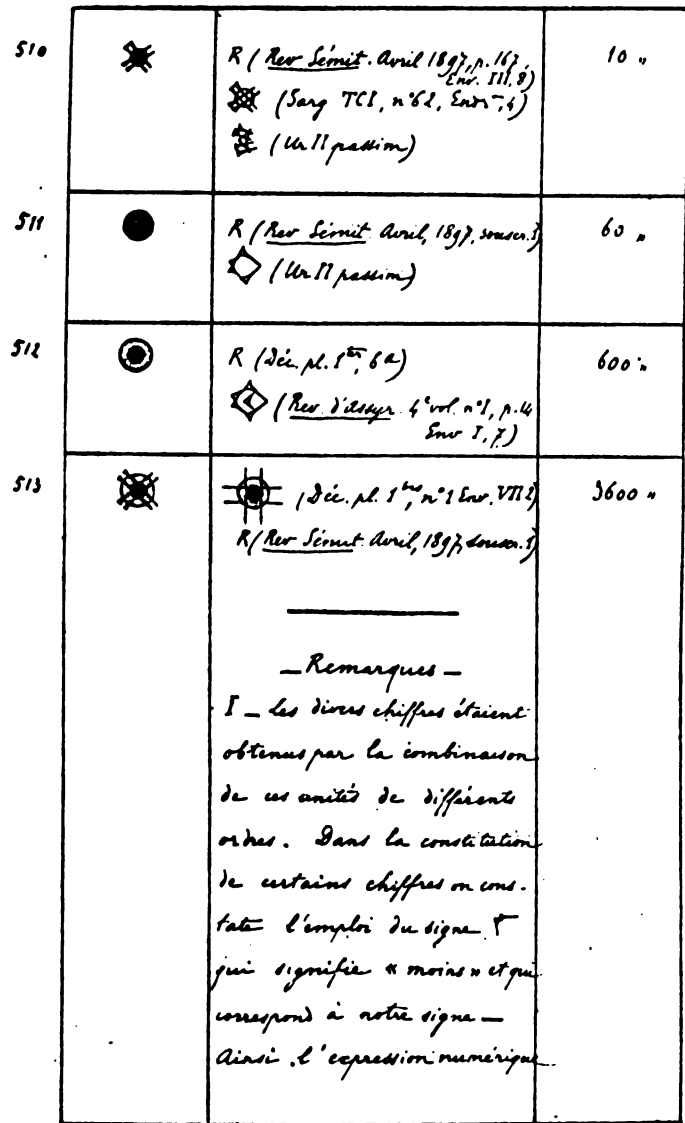 510 R (Rev Sémit. Avril 1897, p. 167, 10 „
Env. III, 8)
(Sarg TCI, n° 62, 4)
(Ur II passim)
511 R (Rev Sémit Avril, 1897, souscr. 60 „
(Ur II passim)
512 R (Déc. pl. 1 6a) 600 „
(Rev. d'assyr. 4e vol. n° I, p. 14
Env I, 7)
513 (Déc. pl. 1 n° 1 Env. VII 3600 „
R (Rev Sémit. Avril, 1897, souscr.
— Remarques —
I — Les divers chiffres étaient
obtenus par la combinaison
de ces unités de différents
ordres. Dans la constitution
de certains chiffres on cons-
tate l'emploi du signe
qui signifie « moins » et qui
correspond à notre signe —
Ainsi l'expression numérique